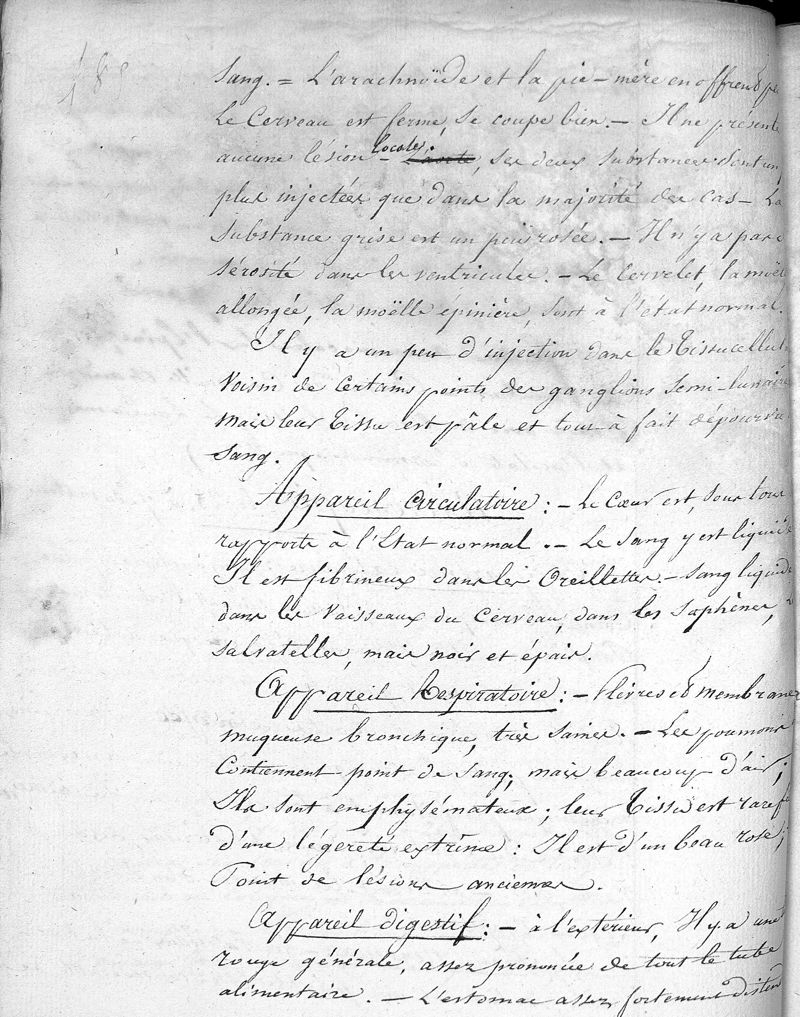 185
sang. = L'arachnoïde et la pie-mère en offrent pe
Le Cerveau est ferme, se coupe bien. — Il ne présente
aucune lésion - locale, ses deux substances sont un
plus injectées que dans la majorité des cas — La
substance grise est un peu rosée. — Il n'y a pas
sérosité dans les ventricules. — Le Cervelet, la moël
allongée, la moëlle épinière, sont à l'état normal.
Il y a un peu d'injection dans le Tissu cellul
voisin de certains points des ganglions semi-lunaire
mais leur Tissu est pâle et tout à fait dépourvu
sang.
Appareil Circulatoire : — Le Cœur est, sous tous
rapports à l'Etat normal. — Le sang y est liquide
Il est fibrineux dans les Oreillettes. — sang liquide
dans les Vaisseaux du Cerveau, dans les saphènes,
salvatelles, mais noir et épais.
Appareil Respiratoire : — Plèvres et membrane
muqueuse bronchique, très saines. — Les poumons
Contiennent point de sang, mais beaucoup d'air ;
Ils sont emphysémateux ; leur Tissu est raref
d'une légereté extrême : Il est d'un beau rose ;
Point de lésions anciennes.
Appareil digestif : — à l'extérieur, Il y a une
rouge générale, assez prononcée de tout le tube
alimentaire. — L'estomac assez fortement disten